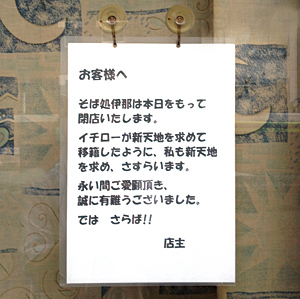 お客様へ
そば処伊那は本日をもって
閉店いたします。
イチローが新天地を求めて
移籍したように、私も新天地
を求め、さすらいます。
永い間ご愛顧頂き、
誠に有難うございました。
では　さらば!!
店主